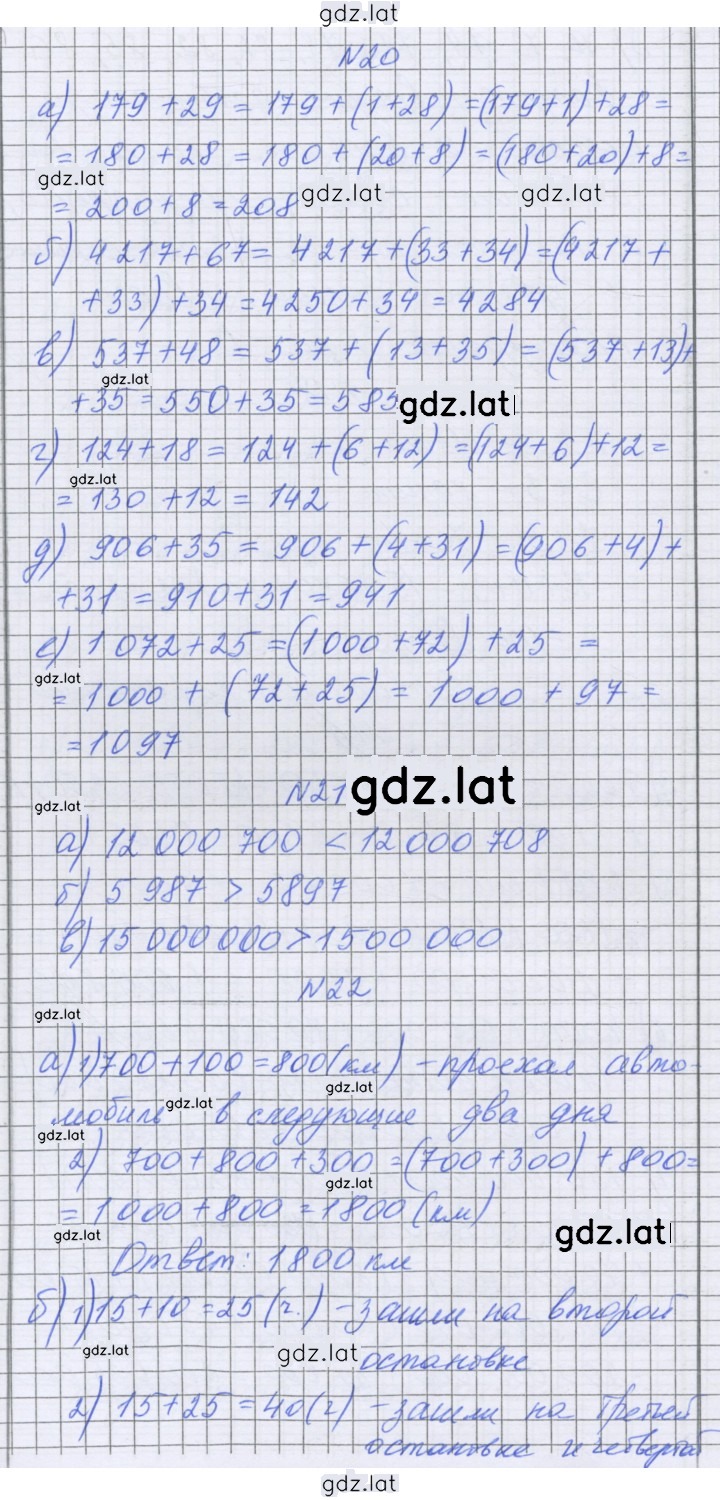 gdz.lat
№20
а) 179 + 29 = 179 + (1+28) = (179+1) + 28 =
= 180 + 28 = 180 + (20 + 8) = (180 + 20) + 8 =
gdz.lat gdz.lat gdz.lat
= 200 + 8 = 208
б) 4217 + 67 = 4217 + (33 + 34) = (4217 +
+ 33) + 34 = 4250 + 34 = 4284
в) 537 + 48 = 537 + (13 + 35) = (537 + 13) +
gdz.lat
+ 35 = 550 + 35 = 585 gdz.lat
г) 124 + 18 = 124 + (6 + 12) = (124 + 6) + 12 =
gdz.lat
= 130 + 12 = 142
д) 906 + 35 = 906 + (4 + 31) = (906 + 4) +
+ 31 = 910 + 31 = 941
е) 1 072 + 25 = (1000 + 72) + 25 =
gdz.lat
= 1000 + (72 + 25) = 1000 + 97 =
= 1097
№21 gdz.lat
gdz.lat
а) 12 000 700 < 12 000 708
б) 5 987 > 5897
в) 15 000 000 > 1500 000
№22
gdz.lat
а) 1) 700 + 100 = 800 (км) – проехал авто-
gdz.lat
мобиль gdz.lat в следующие два дня
gdz.lat
2) 700 + 800 + 300 = (700 + 300) + 800 =
gdz.lat
= 1000 + 800 = 1800 (км)
gdz.lat gdz.lat
Ответ: 1800 км
б) 1) 15 + 10 = 25 (ч.) – зашли на второй
gdz.lat gdz.lat остановке
2) 15 + 25 = 40 (ч) – зашли на третьей
остановке и четвертой
gdz.lat